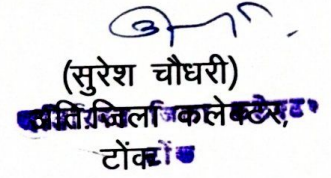 (सुरेश चौधरी)
अति.जिला कलेक्टर,
टोंक